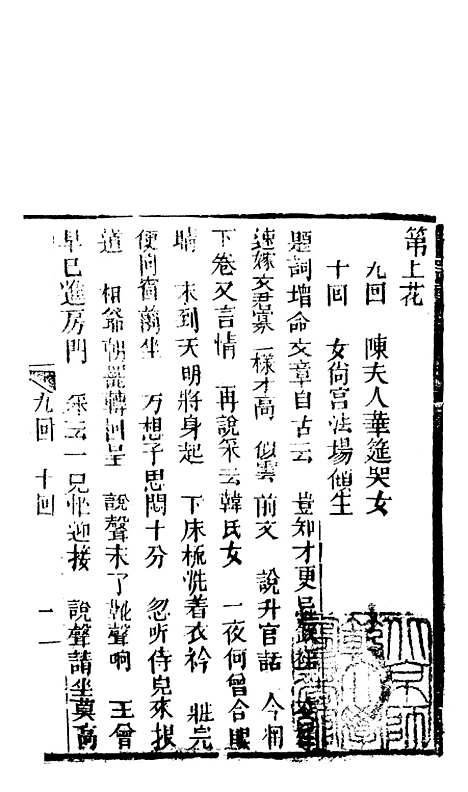 第上花
九回 陳夫人華筵哭女
十回 女尚宫法場傾生
題詞增命文章自古云 豈知才更
速嫁文君寡 一樣才高 似雲 前文 說升官話 今
下卷又言情 再說采云韓氏女 一夜何曾合眼
睛 未到天明將身起 下床梳洗着衣衿 粧完
便向窗前坐 万想千思悶十分 忽听侍兒來报
道 相爺朝罷轉回呈 說聲未了靴聲响 王曾
早已進房門 采云一見忙迎接 說聲請坐莫高
九回 十回 二一